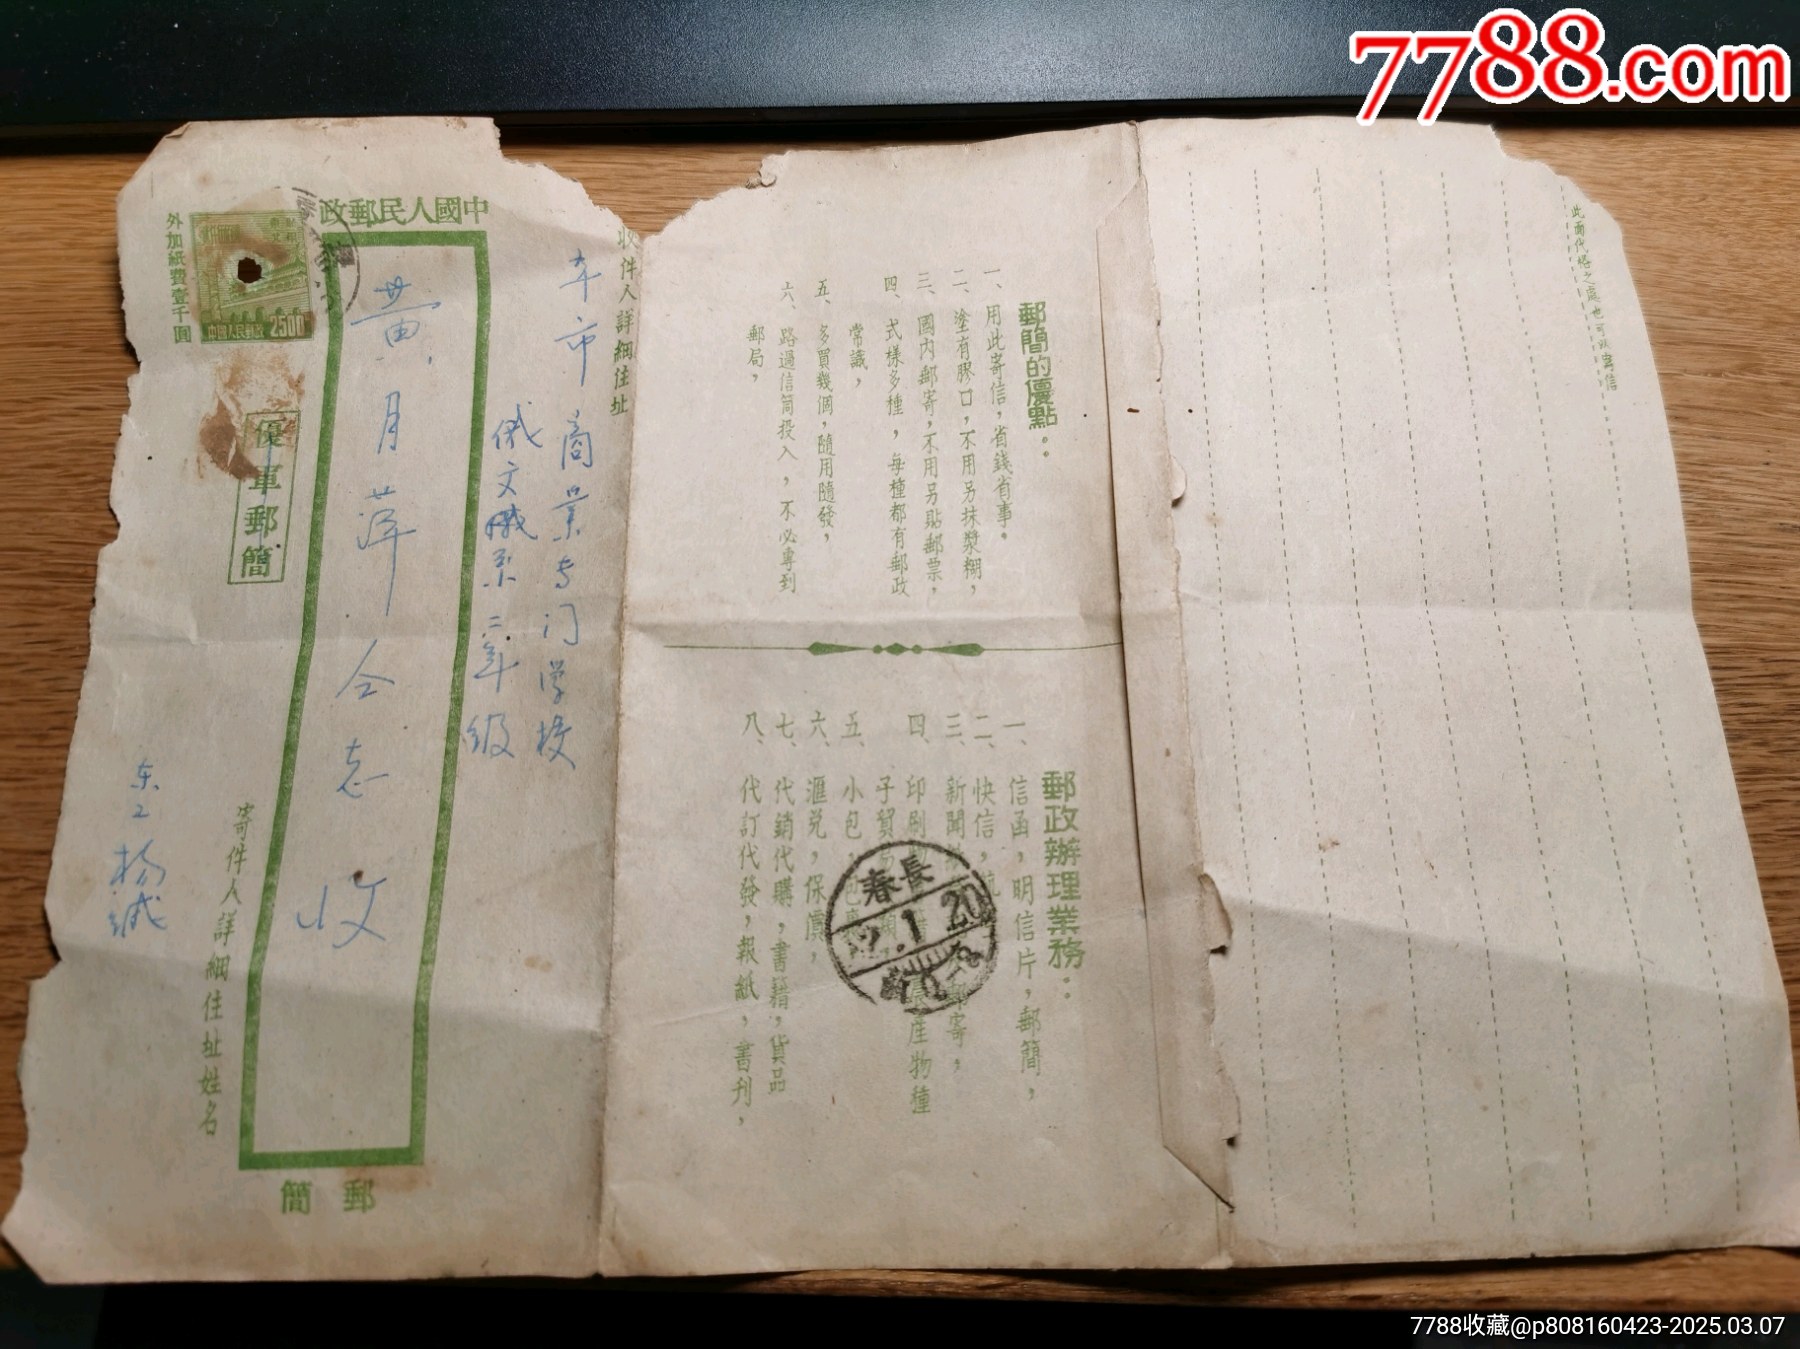 7788.com
中國人民郵政
外加紙費壹千圓
中國人民郵政 2500
優軍郵簡
收件人詳細住址
本市商業专门学校
俄文职系二年级
黄月萍仝志 收
寄件人詳細住址姓名
东工 杨斌
郵簡
郵簡的優點：
一、用此寄信，省錢省事。
二、塗有膠口，不用另抹漿糊，
三、國內郵寄，不用另貼郵票，
四、式樣多種，每種都有郵政
常識，
五、多買幾個，隨用隨發，
六、路過信筒投入，不必專到
郵局，
郵政辦理業務：
一、信函，明信片，郵簡，
二、快信，
三、新聞 郵寄，
四、印刷 農產物種
子貿易
五、小包，
六、滙兌，保價，
七、代銷代購，書籍，貨品
八、代訂代發，報紙，書刊，
長春
.1.20
此面代格之處也可以寫信
7788收藏@p808160423-2025.03.07